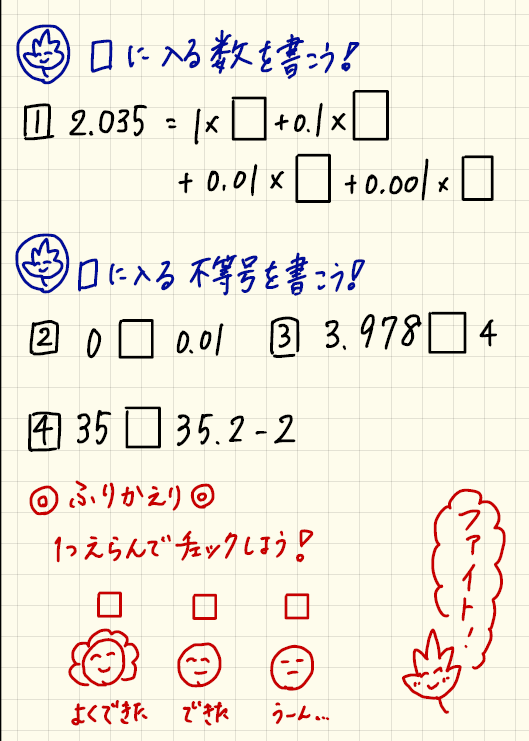 □に入る数を書こう!
1 2.035 = 1×□+0.1×□
+0.01×□+0.001×□
□に入る不等号を書こう!
2 0□0.01 3 3.978□4
4 35□35.2-2
◎ふりかえり◎
1つえらんでチェックしよう!
□ □ □
よくできた できた うーん...
ファイト!